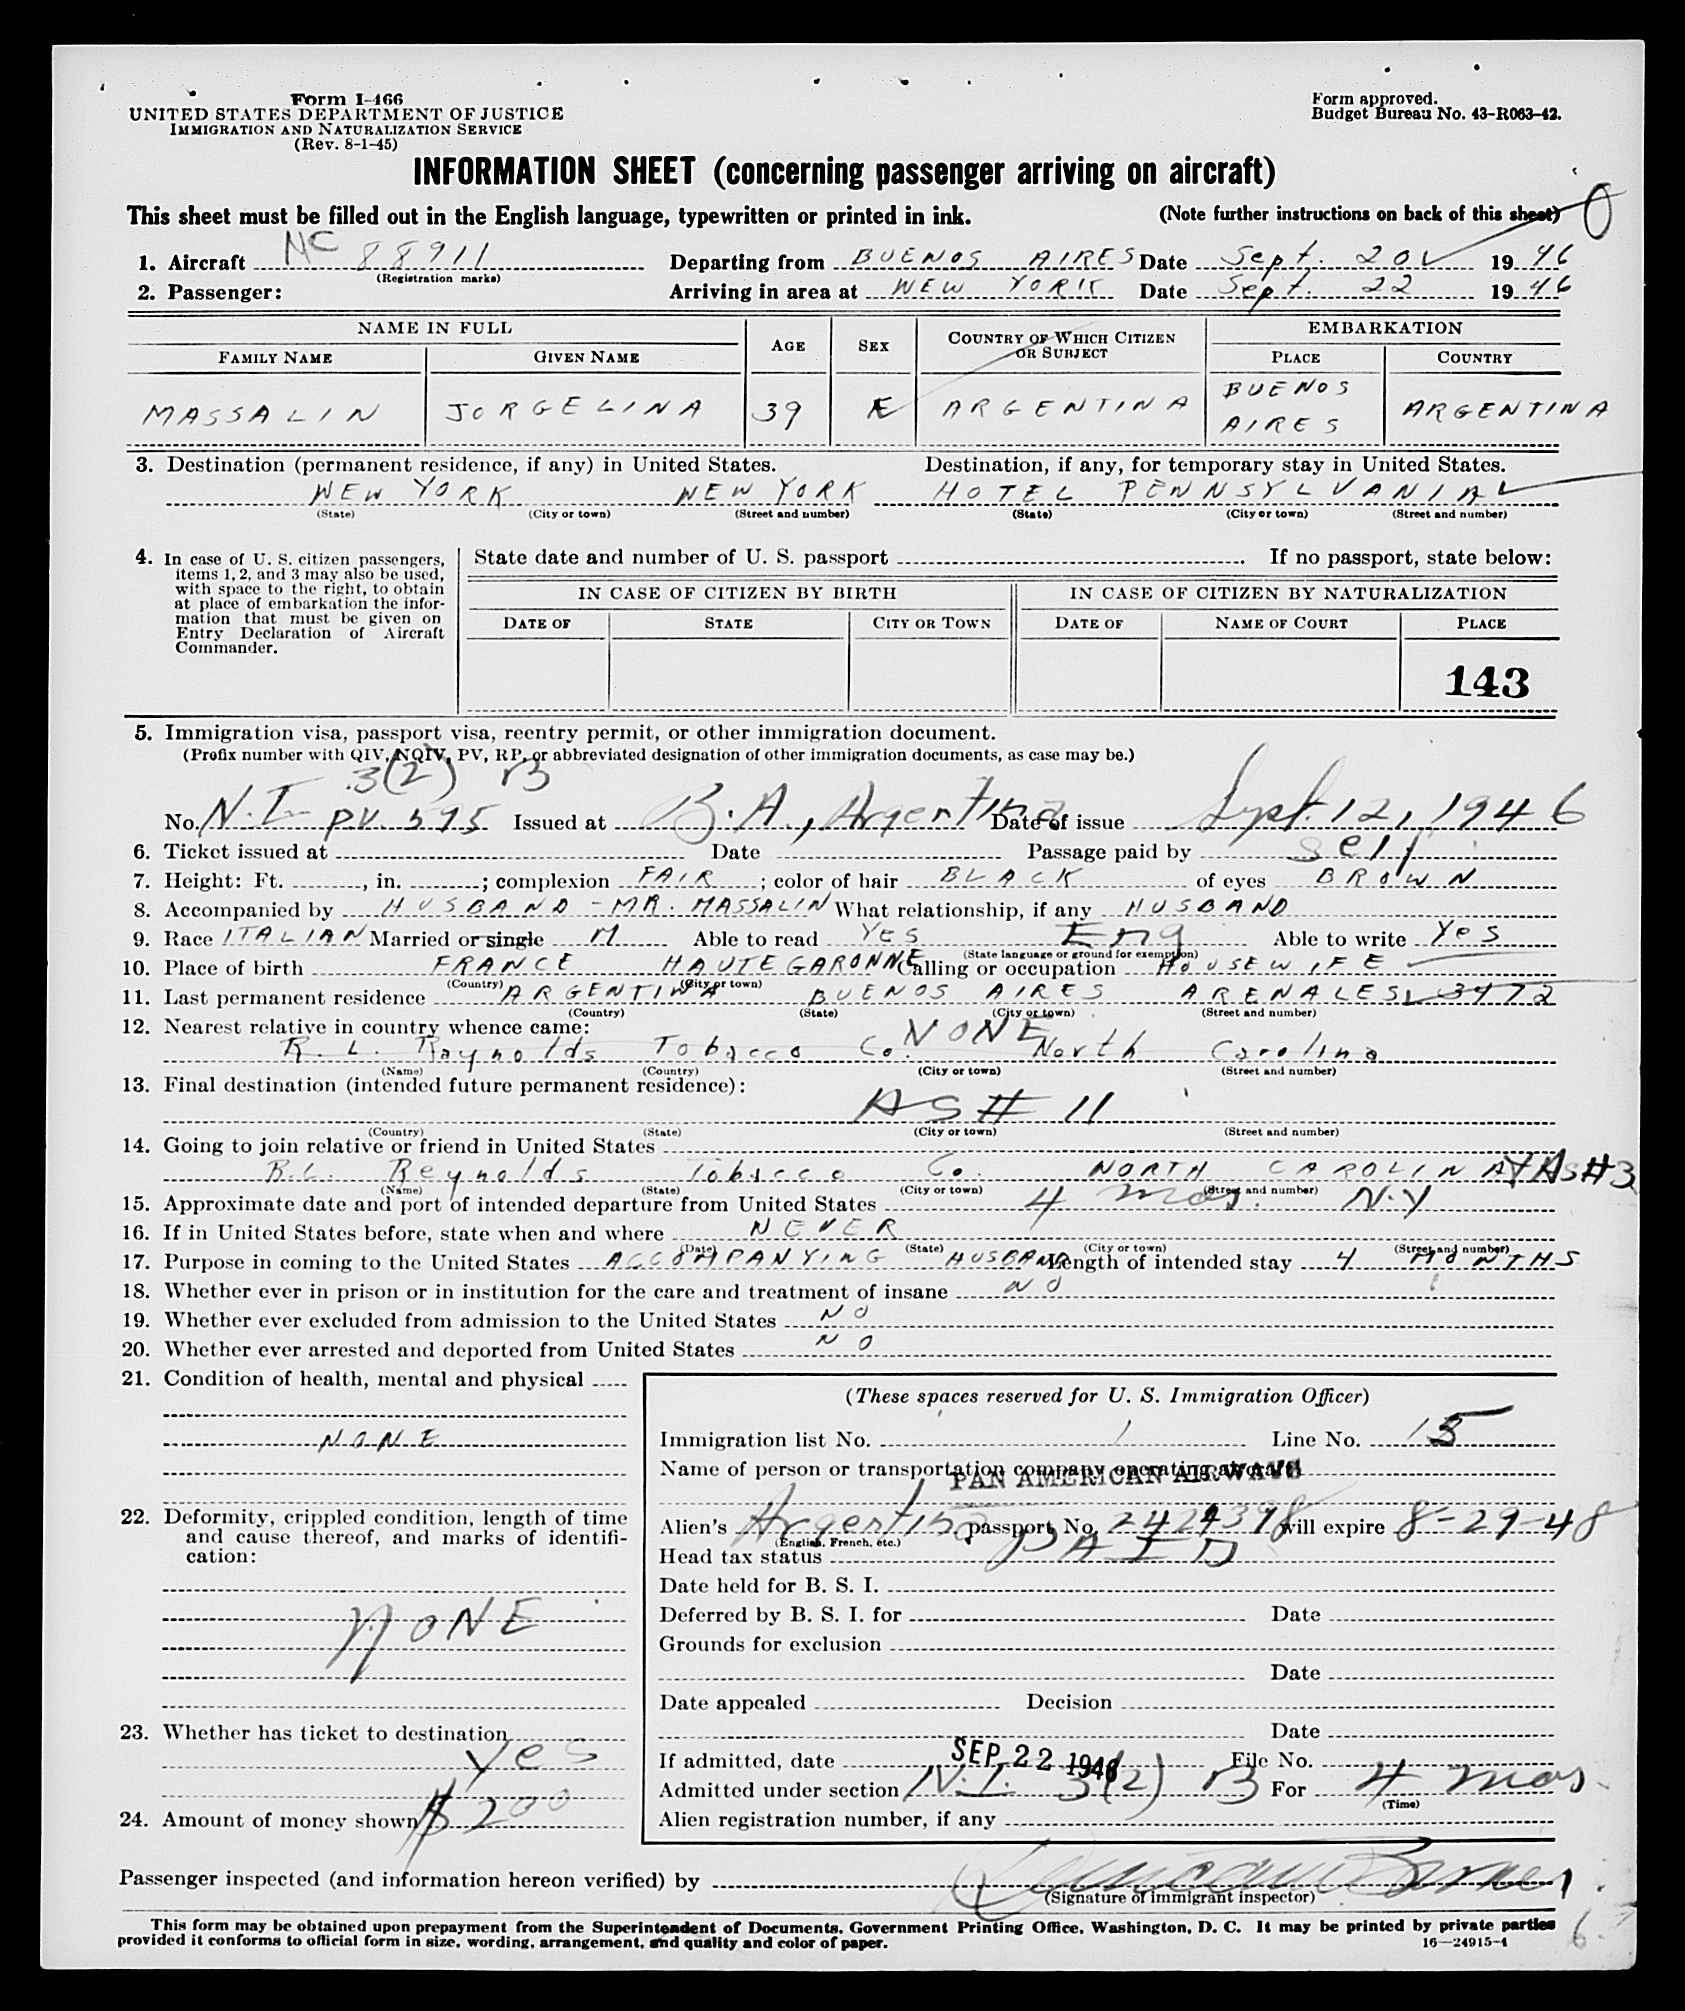 Form I-466
UNITED STATES DEPARTMENT OF JUSTICE
IMMIGRATION AND NATURALIZATION SERVICE
(Rev. 8-1-45)
Form approved.
Budget Bureau No. 43-R063-42.
INFORMATION SHEET (concerning passenger arriving on aircraft)
This sheet must be filled out in the English language, typewritten or printed in ink. (Note further instructions on back of this sheet)
1. Aircraft NC 88911 Departing from BUENOS AIRES Date Sept. 20 1946
(Registration marks)
2. Passenger: Arriving in area at NEW YORK Date Sept. 22 1946
NAME IN FULL AGE SEX COUNTRY OF WHICH CITIZEN OR SUBJECT EMBARKATION
FAMILY NAME GIVEN NAME PLACE COUNTRY
MASSALIN JORGELINA 39 F ARGENTINA BUENOS AIRES ARGENTINA
3. Destination (permanent residence, if any) in United States. Destination, if any, for temporary stay in United States.
NEW YORK NEW YORK HOTEL PENNSYLVANIA
(State) (City or town) (Street and number) (State) (City or town) (Street and number)
4. In case of U. S. citizen passengers, items 1, 2, and 3 may also be used, with space to the right, to obtain at place of embarkation the information that must be given on Entry Declaration of Aircraft Commander.
State date and number of U. S. passport . If no passport, state below:
IN CASE OF CITIZEN BY BIRTH IN CASE OF CITIZEN BY NATURALIZATION
DATE OF STATE CITY OR TOWN DATE OF NAME OF COURT PLACE
143
5. Immigration visa, passport visa, reentry permit, or other immigration document.
(Prefix number with QIV, NQIV, PV, RP, or abbreviated designation of other immigration documents, as case may be.)
3(2) B
No. N.I. PV. 595 Issued at B.A., Argentina Date of issue Sept. 12, 1946
6. Ticket issued at Date Passage paid by Self
7. Height: Ft. , in. ; complexion FAIR ; color of hair BLACK of eyes BROWN
8. Accompanied by HUSBAND - MR. MASSALIN What relationship, if any HUSBAND
9. Race ITALIAN Married or single M Able to read YES Eng Able to write Yes
(State language or ground for exemption)
10. Place of birth FRANCE HAUTE GARONNE Calling or occupation HOUSEWIFE
(Country) (City or town)
11. Last permanent residence ARGENTINA BUENOS AIRES ARENALES 3472
(Country) (State) (City or town) (Street and number)
12. Nearest relative in country whence came: NONE
R. L. Raynolds Tobacco Co. North Carolina
(Name) (Country) (City or town) (Street and number)
13. Final destination (intended future permanent residence):
AS # 11
(Country) (State) (City or town) (Street and number)
14. Going to join relative or friend in United States
R.L. Reynolds Tobacco Co. NORTH CAROLINA AS#3
(Name) (State) (City or town) (Street and number)
15. Approximate date and port of intended departure from United States 4 mos. N.Y
16. If in United States before, state when and where NEVER
(Date) (State) (City or town) (Street and number)
17. Purpose in coming to the United States ACCOMPANYING HUSBAND Length of intended stay 4 MONTHS
18. Whether ever in prison or in institution for the care and treatment of insane NO
19. Whether ever excluded from admission to the United States NO
20. Whether ever arrested and deported from United States NO
21. Condition of health, mental and physical
NONE
22. Deformity, crippled condition, length of time and cause thereof, and marks of identification:
NONE
23. Whether has ticket to destination
Yes
24. Amount of money shown $200
(These spaces reserved for U. S. Immigration Officer)
Immigration list No. 1 Line No. 15
Name of person or transportation company operating aircraft
PAN AMERICAN AIRWAYS
Alien's Argentina passport No. 2424398 will expire 8-29-48
(English, French, etc.)
Head tax status PAID
Date held for B. S. I.
Deferred by B. S. I. for Date
Grounds for exclusion
Date
Date appealed Decision
Date
If admitted, date SEP 22 1946 File No.
Admitted under section N.I. 3(2) B For 4 mos.
(Time)
Alien registration number, if any
Passenger inspected (and information hereon verified) by
(Signature of immigrant inspector)
This form may be obtained upon prepayment from the Superintendent of Documents, Government Printing Office, Washington, D. C. It may be printed by private parties
provided it conforms to official form in size, wording, arrangement, and quality and color of paper.
16—24915-1